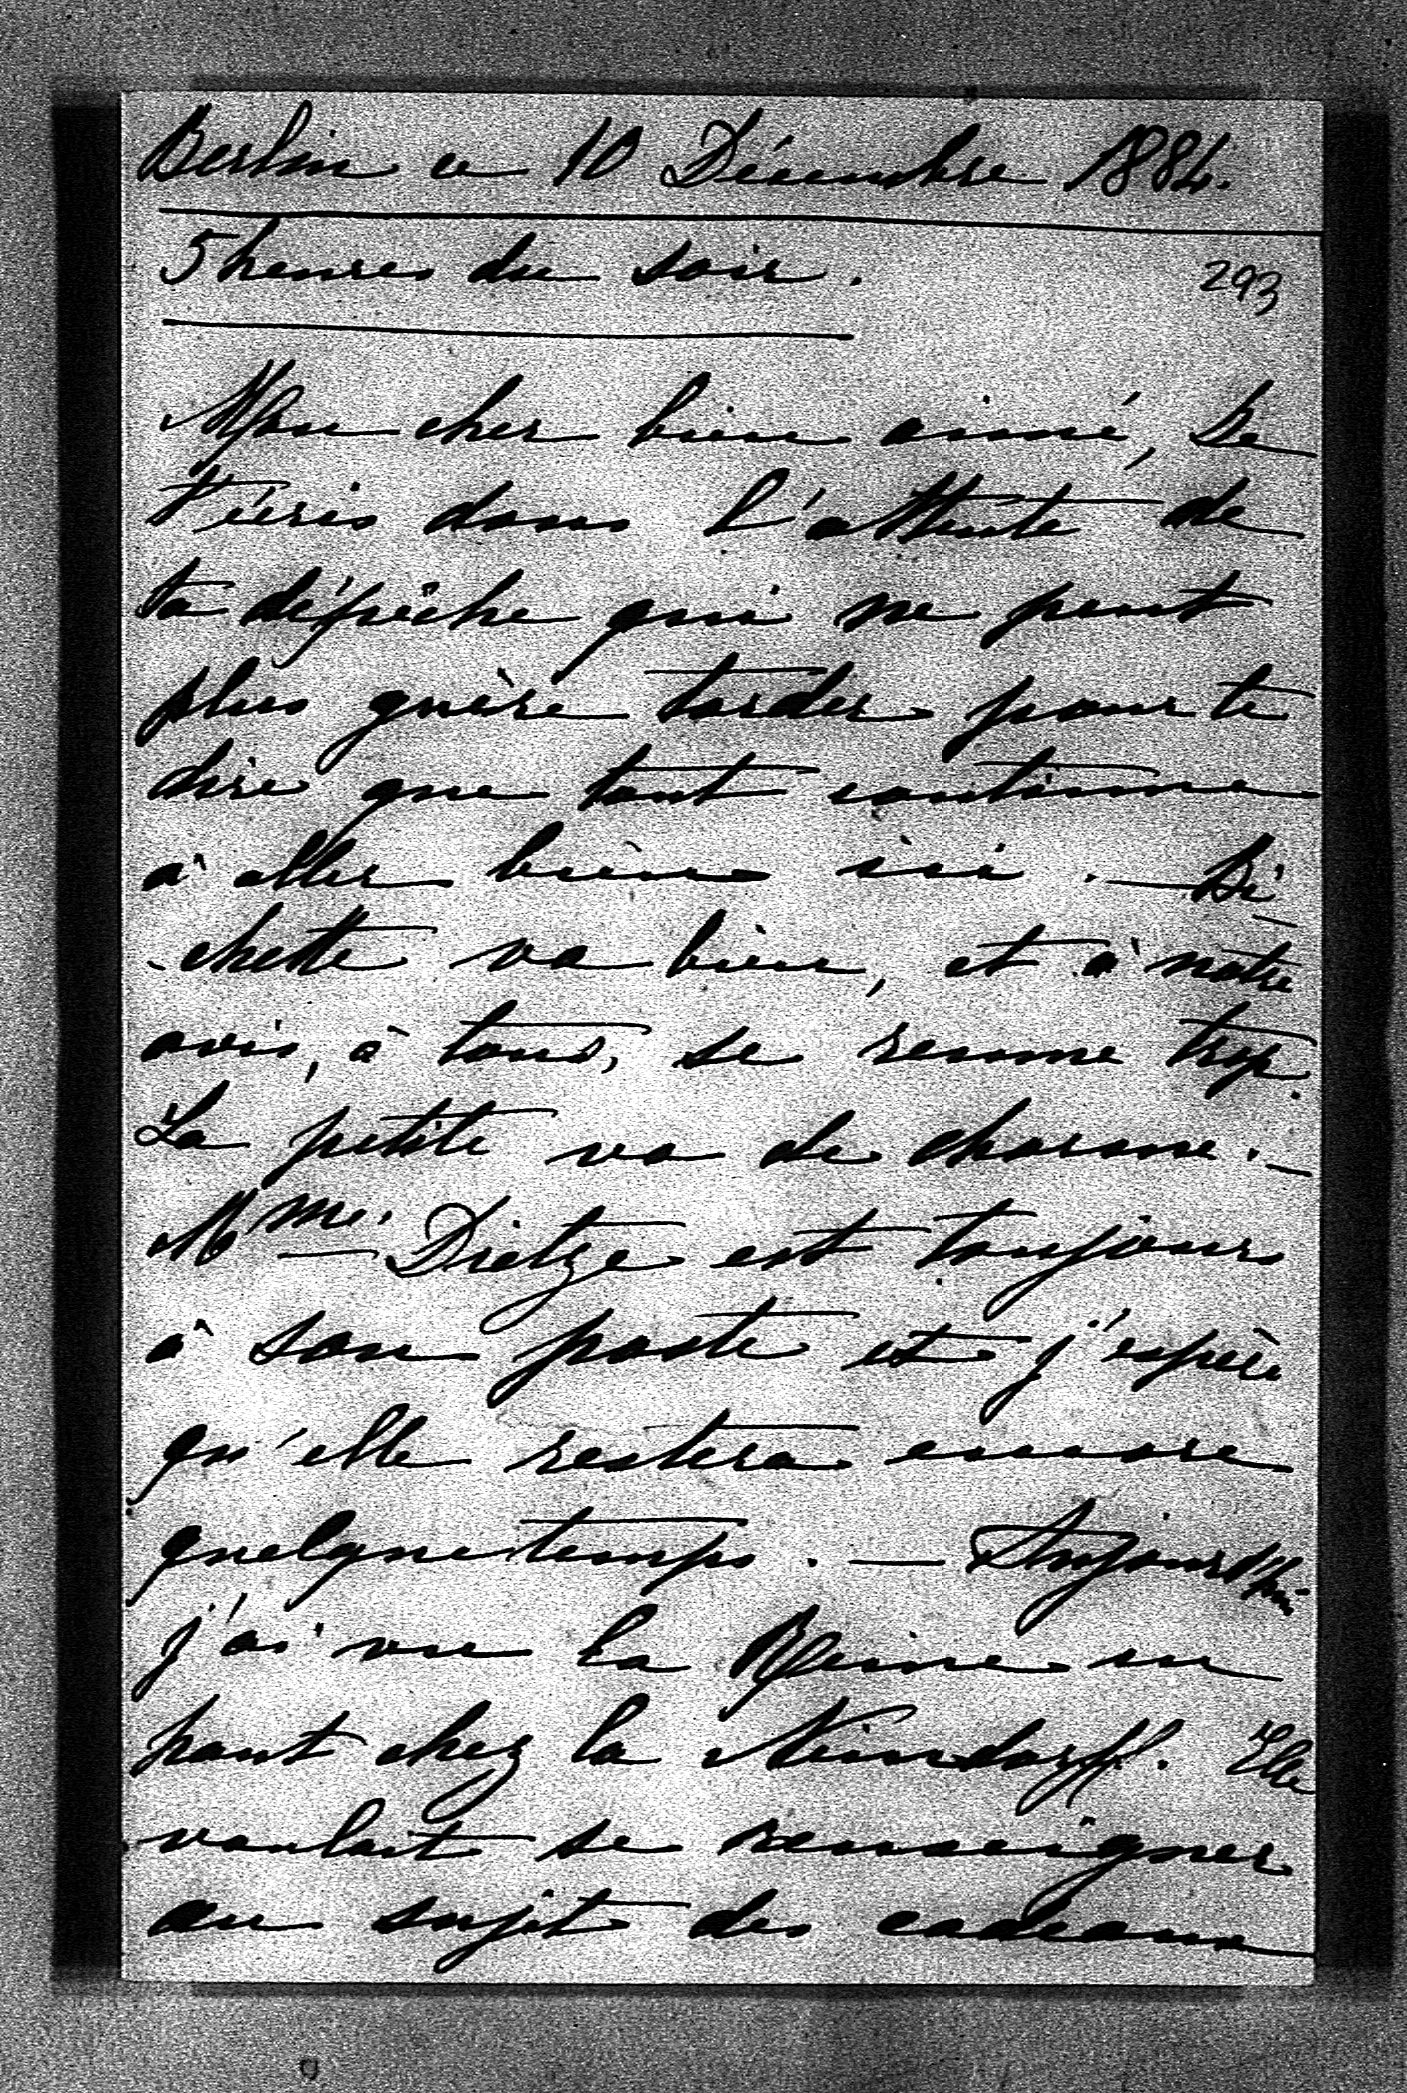 Berlin ce 10 Décembre 1884.
5 heures du soir.
293
Mon cher bien aimé, Je
t'écris dans l'attente de
ta dépêche qui ne peut
plus guère tarder pour te
dire que tout continue
à aller bien ici. — Bi
-chette va bien, et à notre
avis, à tous, se remue trop.
La petite va de charme. —
Mme. Dietze est toujours
à son poste et j'espère
qu'elle restera encore
quelque temps. — Aujourd'hui
j'ai vu la Reine en
pant chez la Neindorff. Elle
voulait se renseigner
au sujet des cadeaux